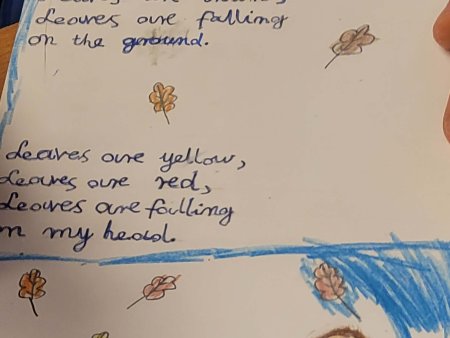 Leaves are falling
on the ground.
Leaves are yellow,
Leaves are red,
Leaves are falling
on my head.